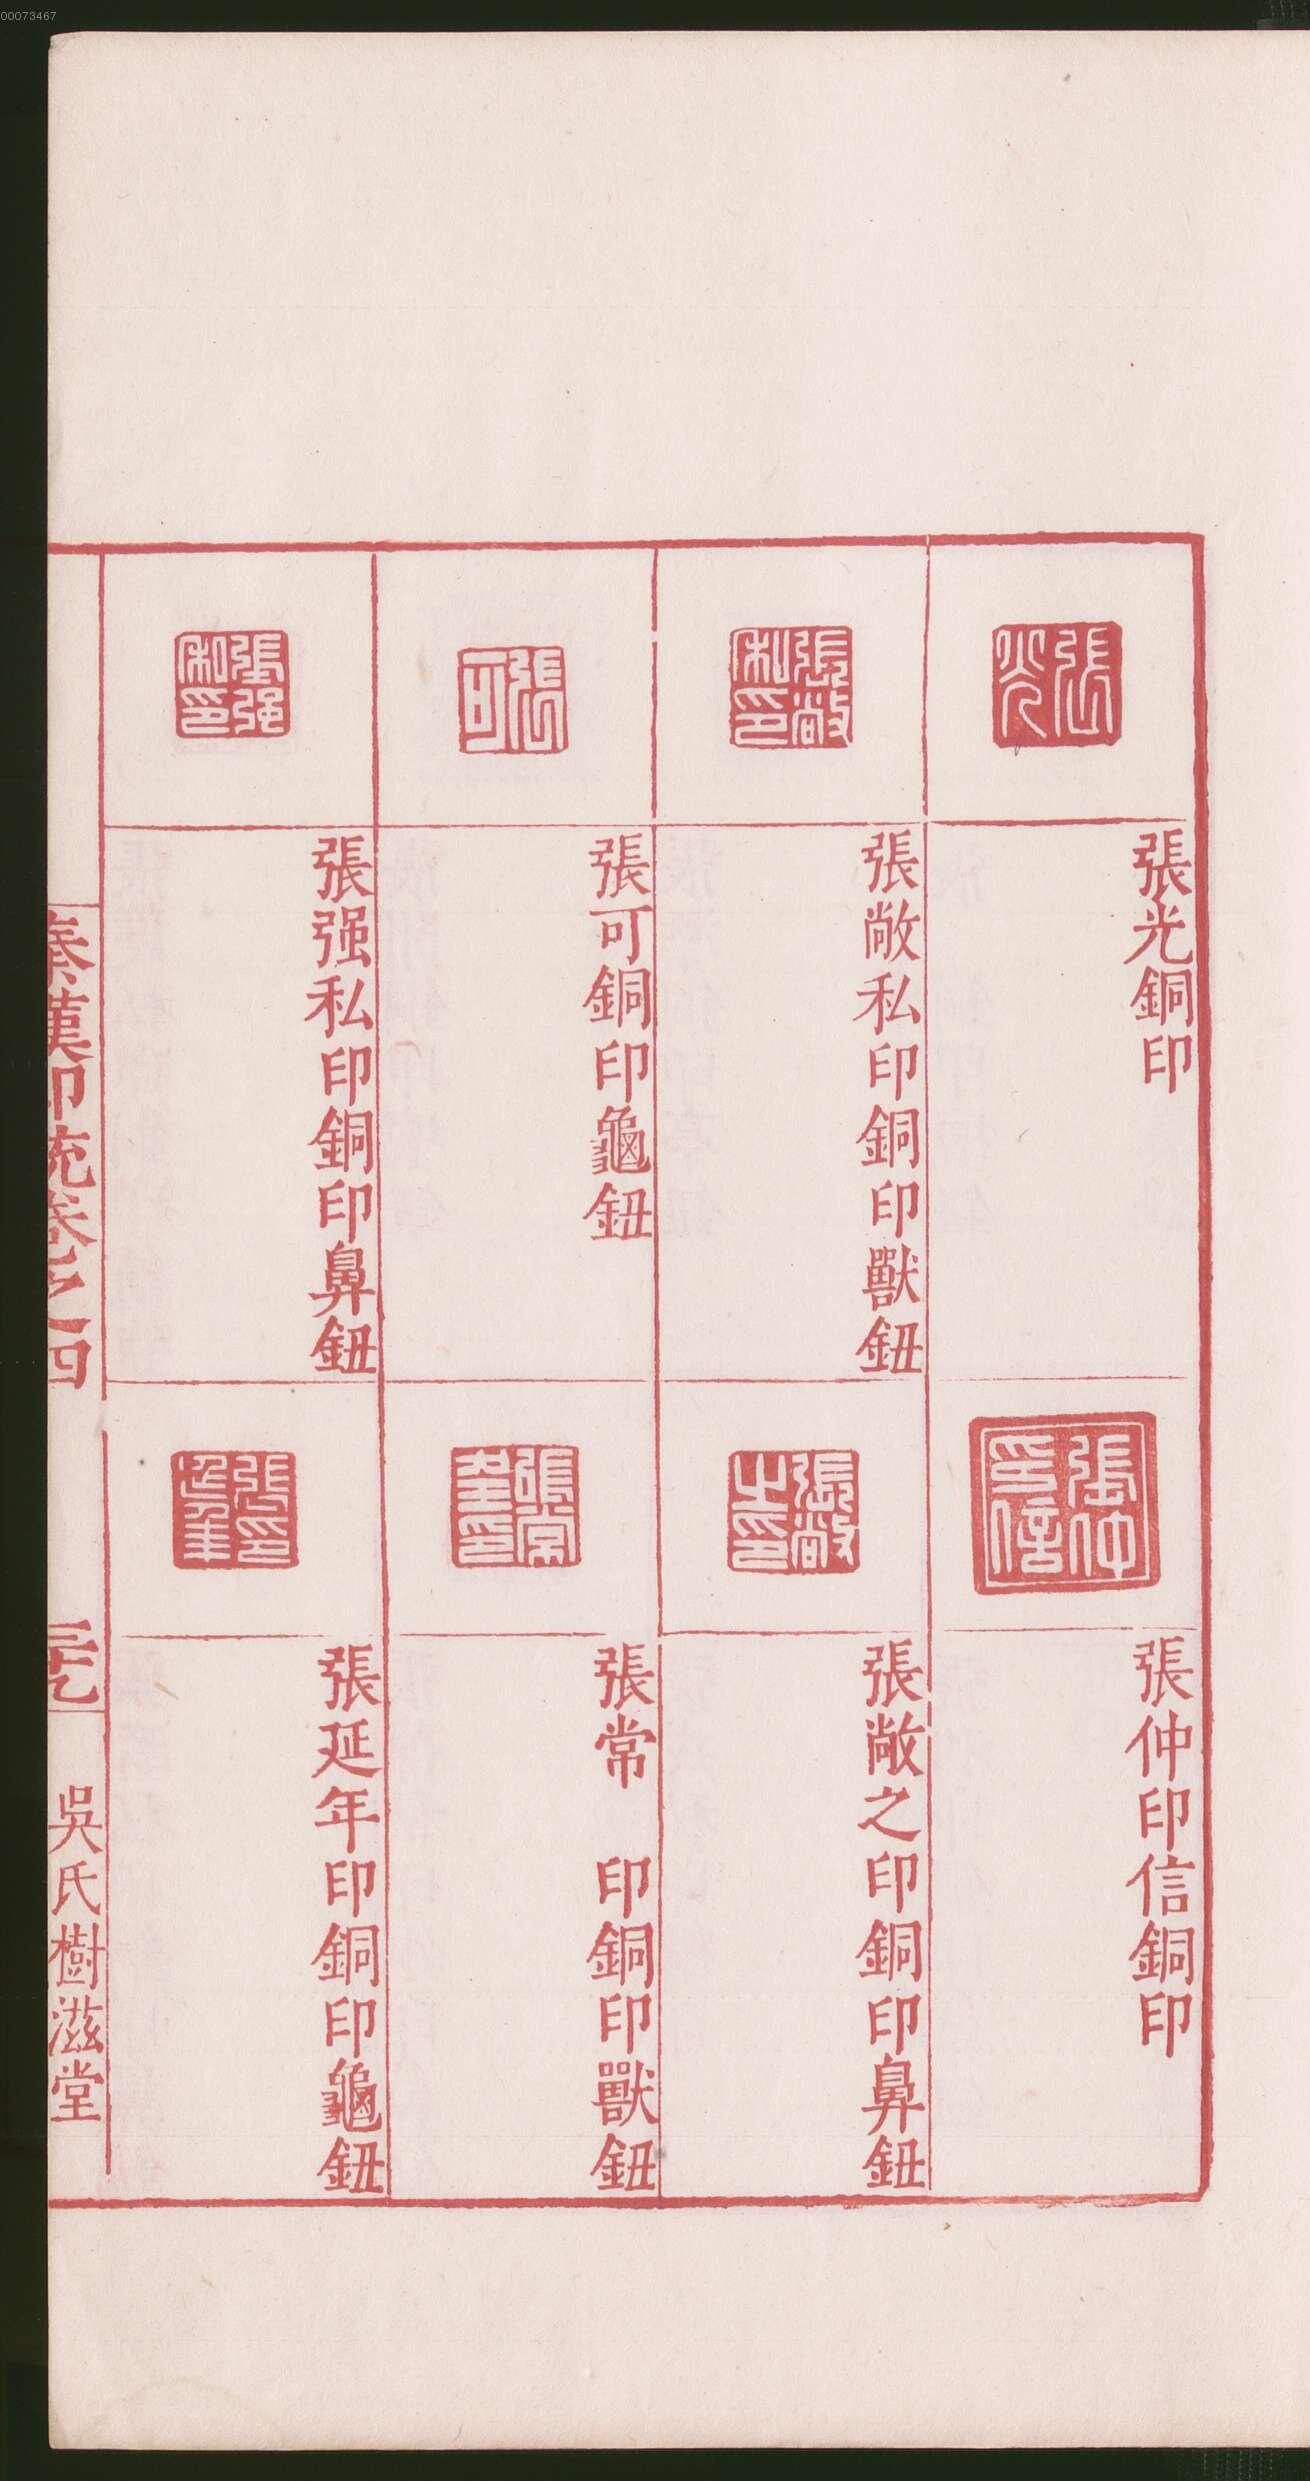 00073467
張光
張光銅印
張仲印信
張仲印信銅印
張敞私印
張敞私印銅印獸鈕
張敞之印
張敞之印銅印鼻鈕
張可
張可銅印龜鈕
張常
張常 印銅印獸鈕
張强私印
張强私印銅印鼻鈕
張印延年
張延年印銅印龜鈕
秦漢印統卷之四
吳氏樹滋堂